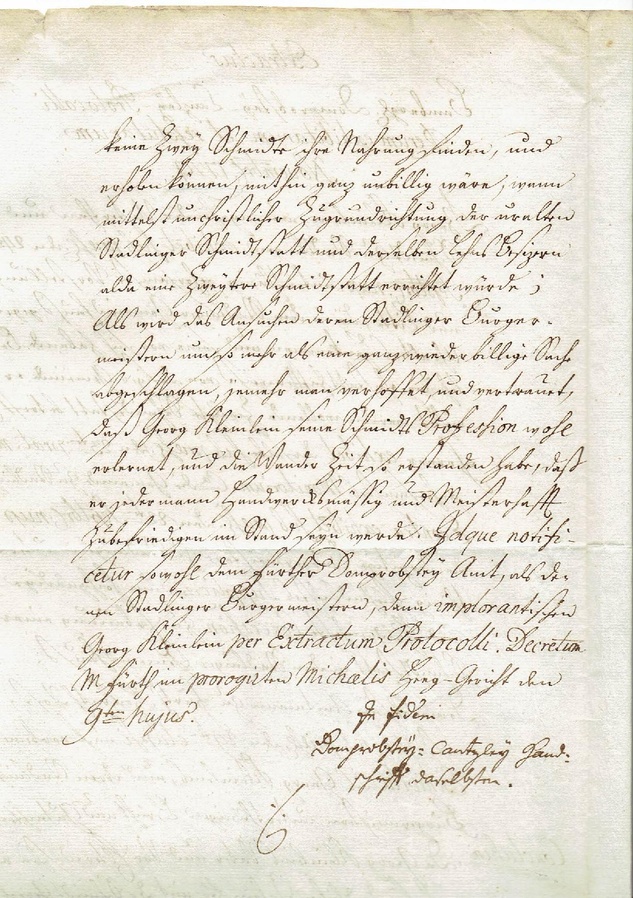 keine Zwey Schmidte ihre Nahrung finden, und
erhoben können, mithin ganz unbillig wäre, wann
mittelst unchristlicher Zugrundrichtung der uralten
Stadlinger Schmidtstatt und derselben Lehns Besizern
alda eine Zweytere Schmidtstatt errichtet würde;
Als wird das Ansuchen deren Stadlinger Burger-
meistern um so mehr als eine ganz wiederbillige Sach
abgeschlagen, jemehr man verhoffet, und vertrauet,
daß Georg Kleinlein seine Schmidts Profession wohl
erlernet, und die Wander Zeit so erstanden habe, daß
er jedermann Handwercksmässig und Meisterhafft
zubefriedigen im Stand seyn werde. Idque notifi-
cetur sowohl dem Fürther Domprobstey Amt, als de-
nen Stadlinger Burgermeistern, dann implorantischen
Georg Kleinlein per Extractum Protocolli. Decretum
Fürth im prorogirten Michaelis Heeg-Gericht den
9ten hujus.
In fidem
Domprobstey-Cantzley Hand-
schrifft daselbsten.